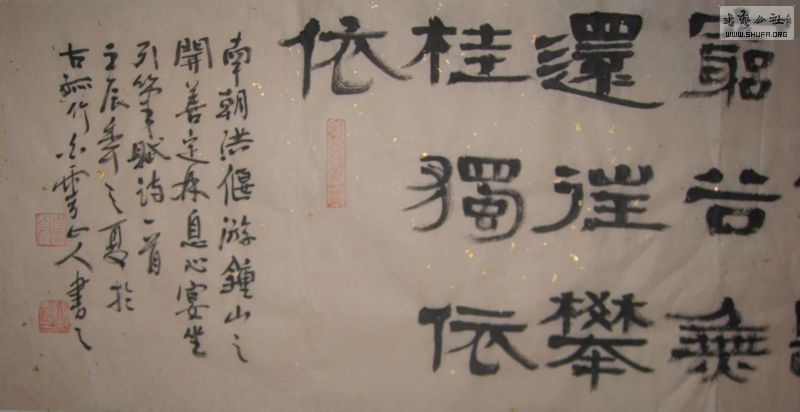 窮谷無
還往攀
桂獨依
依
南朝洪偃游鍾山之
開善定林息心宴坐
引筆賦詩一首
壬辰年之夏於
古孤竹雲山人書之
書藝公社
WWW.SHUFA.ORG